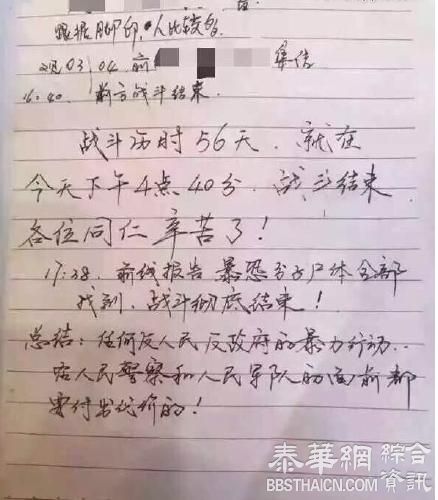 跟据脚印，人比较多
观03 04 前 集结
16:40. 前方战斗结束.
战斗历时56天. 就在
今天下午4点40分. 战斗结束.
各位同仁辛苦了！
17:38. 前线报告 暴恐分子尸体全部
找到. 战斗彻底结束！
总结：任何反人民反政府的暴力行动..
在人民警察和人民军队的面前都
要付出代价的！
泰華網 綜合資訊
BBSTHAICN.COM